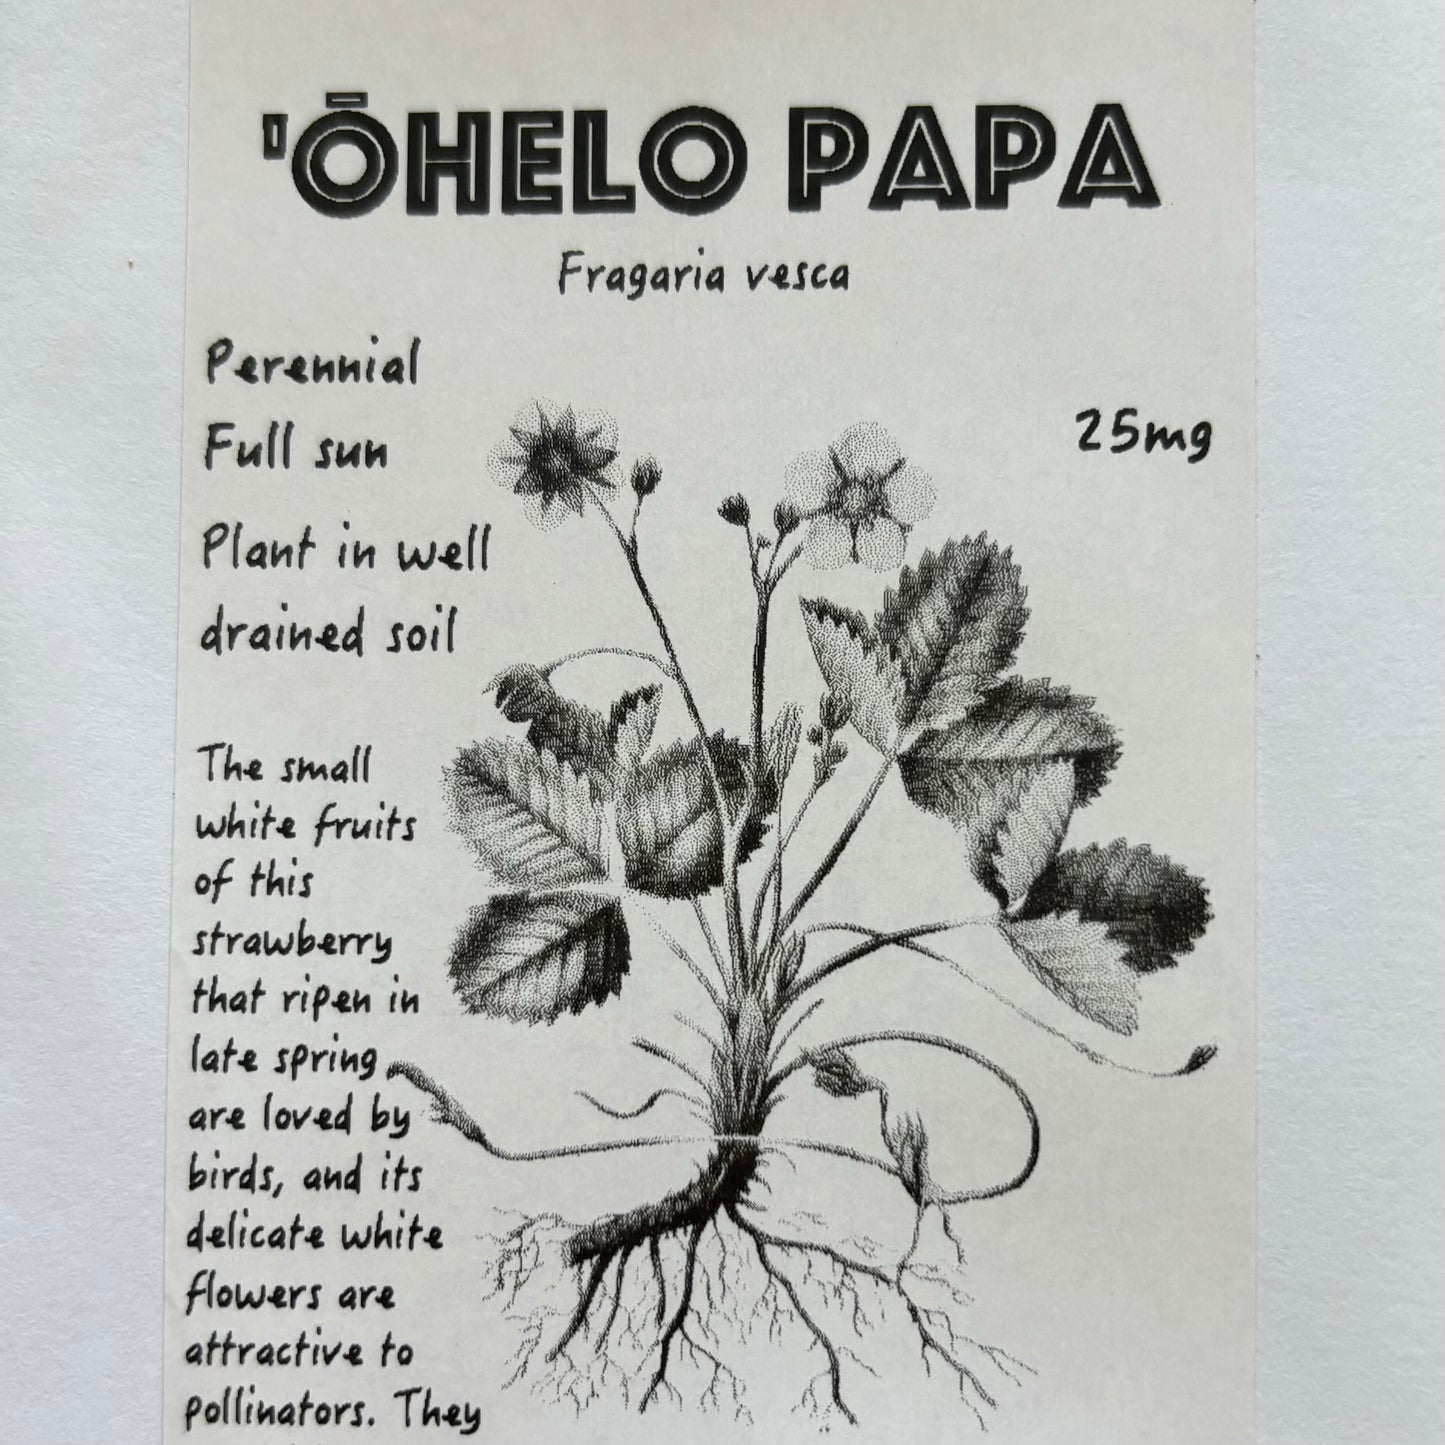 'ŌHELO PAPA
Fragaria vesca
Perennial
Full sun
25mg
Plant in well
drained soil
The small
white fruits
of this
strawberry
that ripen in
late spring
are loved by
birds, and its
delicate white
flowers are
attractive to
pollinators. They